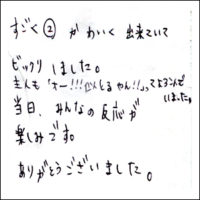 すごく②かわいく出来ていて
ビックリしました。
主人も「オー!!!似とるやん!!」ってよろこんで
いました。
当日、みんなの反応が
楽しみです。
ありがとうございました。